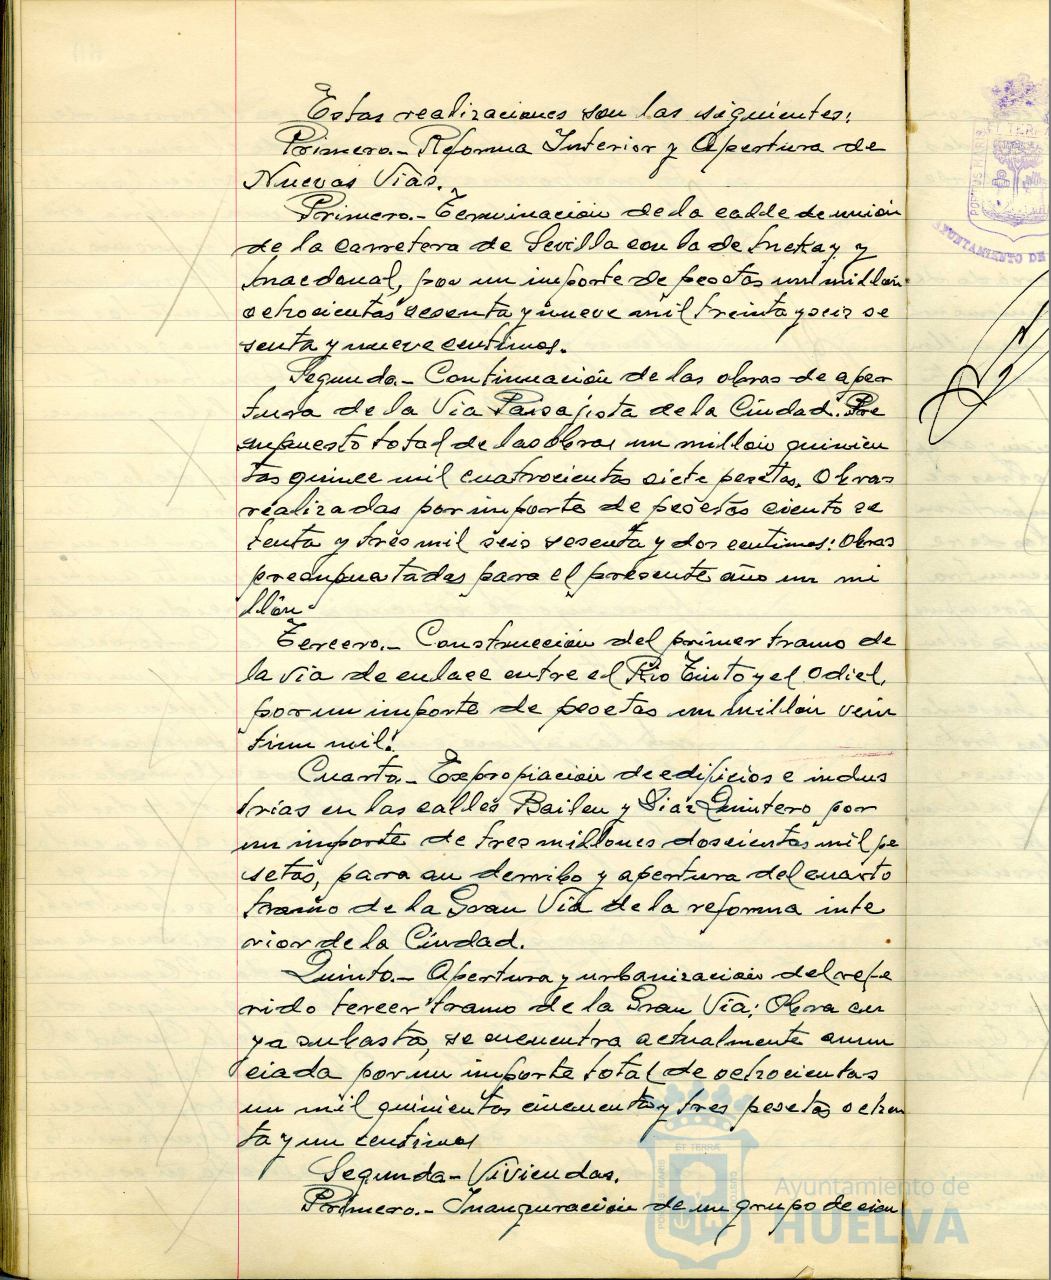 Estas realizaciones son las siguientes:
Primera.- Reforma Interior y Apertura de
Nuevas Vías.
Primero.- Terminación de la calle de unión
de la carretera de Sevilla con la de y
por un importe de pesetas un millón
ochocientas sesenta y nueve mil treinta y seis se
senta y nueve centimos.
Segundo.- Continuación de las obras de aper
tura de la Vía Paisajista de la Ciudad. Pre
supuesto total de las obras un millón quinien
tas quince mil cuatrocientas siete pesetas. Obras
realizadas por importe de pesetas ciento se
tenta y tres mil seis sesenta y dos centimos: Obras
presupuestadas para el presente año un mi
llón.
Tercero.- Construcción del primer tramo de
la vía de enlace entre el Río Tinto y el Odiel,
por un importe de pesetas un millón vein
tiun mil.
Cuarto.- Expropiación de edificios e indus
trias en las calles Bailen y Diaz Quintero por
un importe de tres millones doscientas mil pe
setas, para su derribo y apertura del cuarto
tramo de la Gran Vía de la reforma inte
rior de la Ciudad.
Quinto.- Apertura y urbanización del refe
rido tercer tramo de la Gran Vía; Obra cu
ya subasta, se encuentra actualmente anun
ciada por un importe total de ochocientas
un mil quinientas cincuenta y tres pesetas ochen
ta y un centimos
Segunda.- Viviendas.
Primero.- Inauguración de un grupo de cien
PORTUS MARIS
ET TERRAE
AYUNTAMIENTO DE
Ayuntamiento de
HUELVA